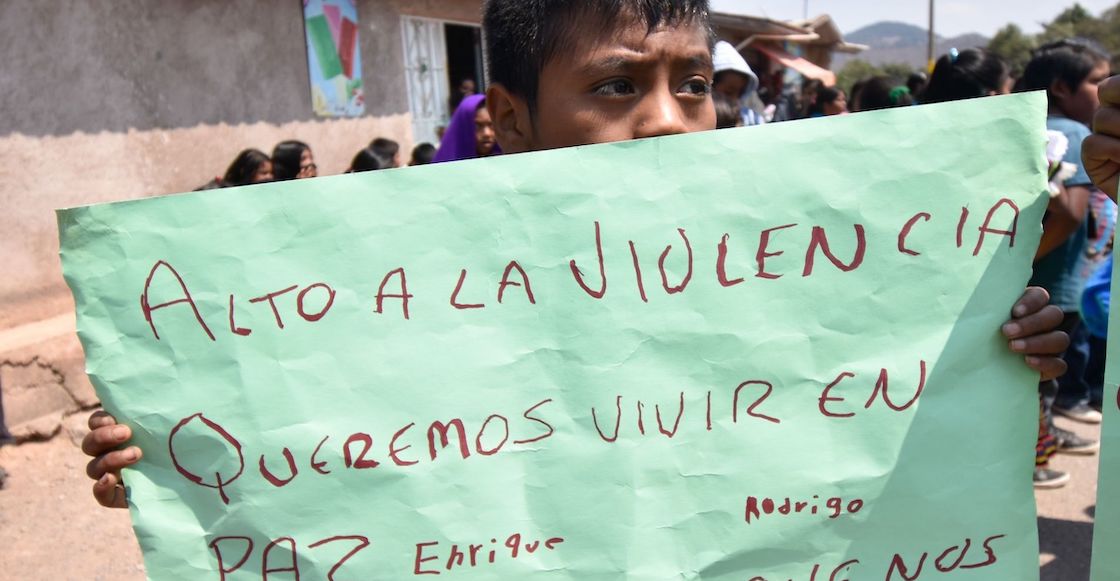 ALTO A LA VIOLENCIA
QUEREMOS VIVIR EN
Rodrigo
PAZ Enrique
QUE NOS